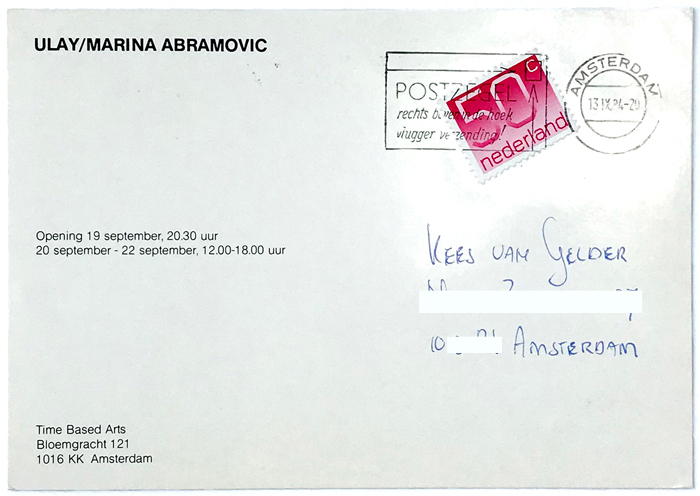 ULAY/MARINA ABRAMOVIC
POSTZEGEL
rechts bovenin de hoek
vlugger verzending!
50 c
nederland
AMSTERDAM
13.IX.84-20
Opening 19 september, 20.30 uur
20 september - 22 september, 12.00-18.00 uur
KEES VAN GELDER
10
AMSTERDAM
Time Based Arts
Bloemgracht 121
1016 KK Amsterdam